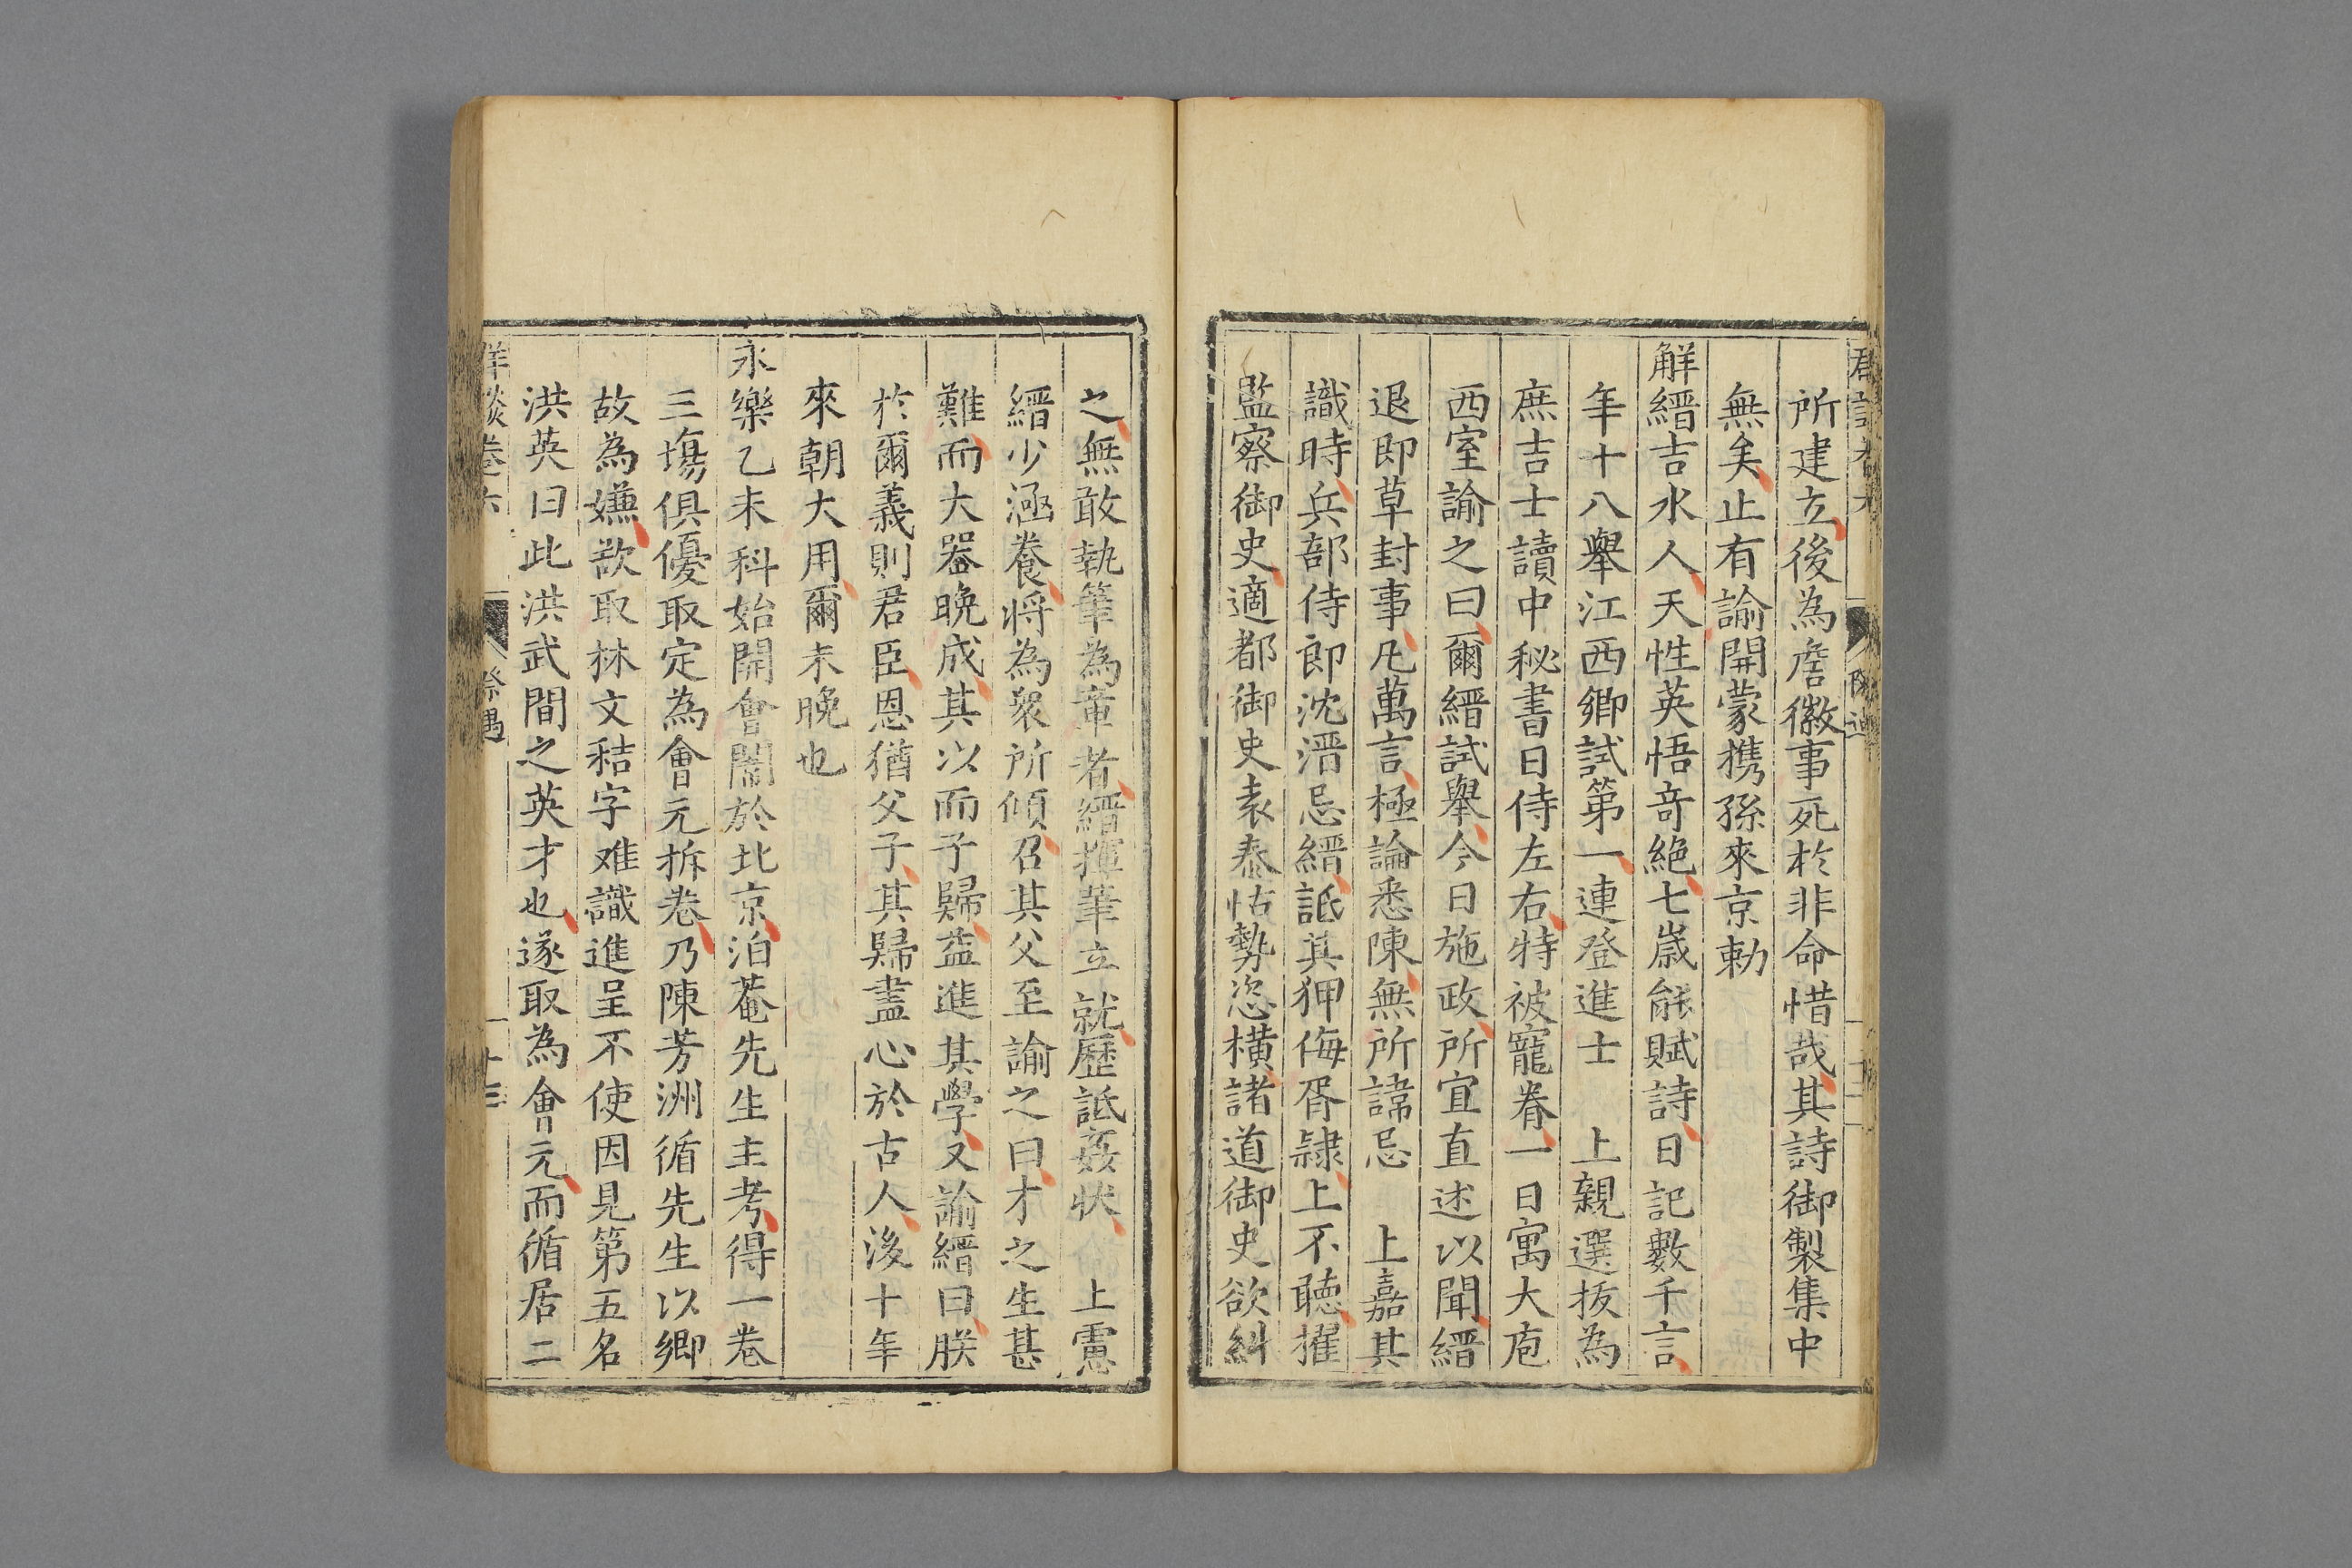 所建立後為詹徽事死於非命惜哉其詩御製集中
無矣止有諭開蒙携孫來京勅
解縉吉水人天性英悟奇絶七歲能賦詩日記數千言
年十八舉江西鄉試第一連登進士　上親選拔為
庶吉士讀中秘書日侍左右特被寵眷一日寓大庖
西室諭之曰爾縉試舉今日施政所宜直述以聞縉
退即草封事凢萬言極論悉陳無所諱忌　上嘉其
識時兵部侍郎沈溍忌縉詆其狎侮胥隷上不聽擢
監察御史適都御史袁泰怙勢恣橫諸道御史欲糾
之無敢執筆為章者縉揮筆立就歷詆姦狀　上慮
縉少涵養将為衆所傾召其父至諭之曰才之生甚
難而大器晚成其以而子歸益進其學又諭縉曰朕
於爾義則君臣恩猶父子其歸盡心於古人後十年
來朝大用爾未晚也
永樂乙未科始開會闈於北京洎菴先生主考得一卷
三塲俱優取定為會元拆卷乃陳芳洲循先生以鄉
故為嫌欲取林文秸字难識進呈不使因見第五名
洪英曰此洪武間之英才也遂取為會元而循居二
卷六
遇
十三